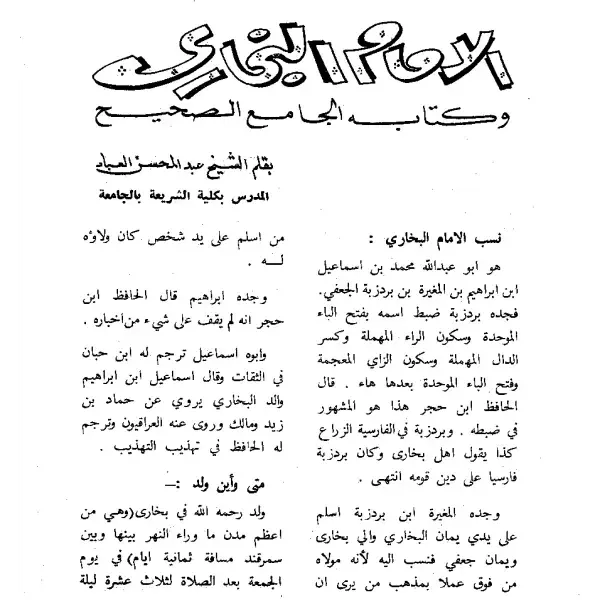 الامام البخاري
وكتابه الجامع الصحيح
بقلم الشيخ عبد المحسن العباد
المدرس بكلية الشريعة بالجامعة
نسب الامام البخاري :
هو ابو عبدالله محمد بن اسماعيل
ابن ابراهيم بن المغيرة بن بردزبة الجعفي.
فجده بردزبة ضبط اسمه بفتح الباء
الموحدة وسكون الراء المهملة وكسر
الدال المهملة وسكون الزاي المعجمة
وفتح الباء الموحدة بعدها هاء . قال
الحافظ ابن حجر هذا هو المشهور
في ضبطه . وبردزبة في الفارسية الزراع
كذا يقول اهل بخارى وكان بردزبة
فارسيا على دين قومه انتهى .
وجده المغيرة ابن بردزبة اسلم
على يدي يمان البخاري والي بخارى
ويمان جعفي فنسب اليه لأنه مولاه
من فوق عملا بمذهب من يرى ان
من اسلم على يد شخص كان ولاؤه
لـــه .
وجده ابراهيم قال الحافظ ابن
حجر انه لم يقف على شيء من اخباره .
وابوه اسماعيل ترجم له ابن حبان
في الثقات وقال اسماعيل ابن ابراهيم
والد البخاري يروي عن حماد بن
زيد ومالك وروى عنه العراقيون وترجم
له الحافظ في تهذيب التهذيب .
متى وأين ولد :—
ولد رحمه الله في بخارى (وهي من
اعظم مدن ما وراء النهر بينها وبين
سمرقند مسافة ثمانية ايام) في يوم
الجمعة بعد الصلاة لثلاث عشرة ليلة